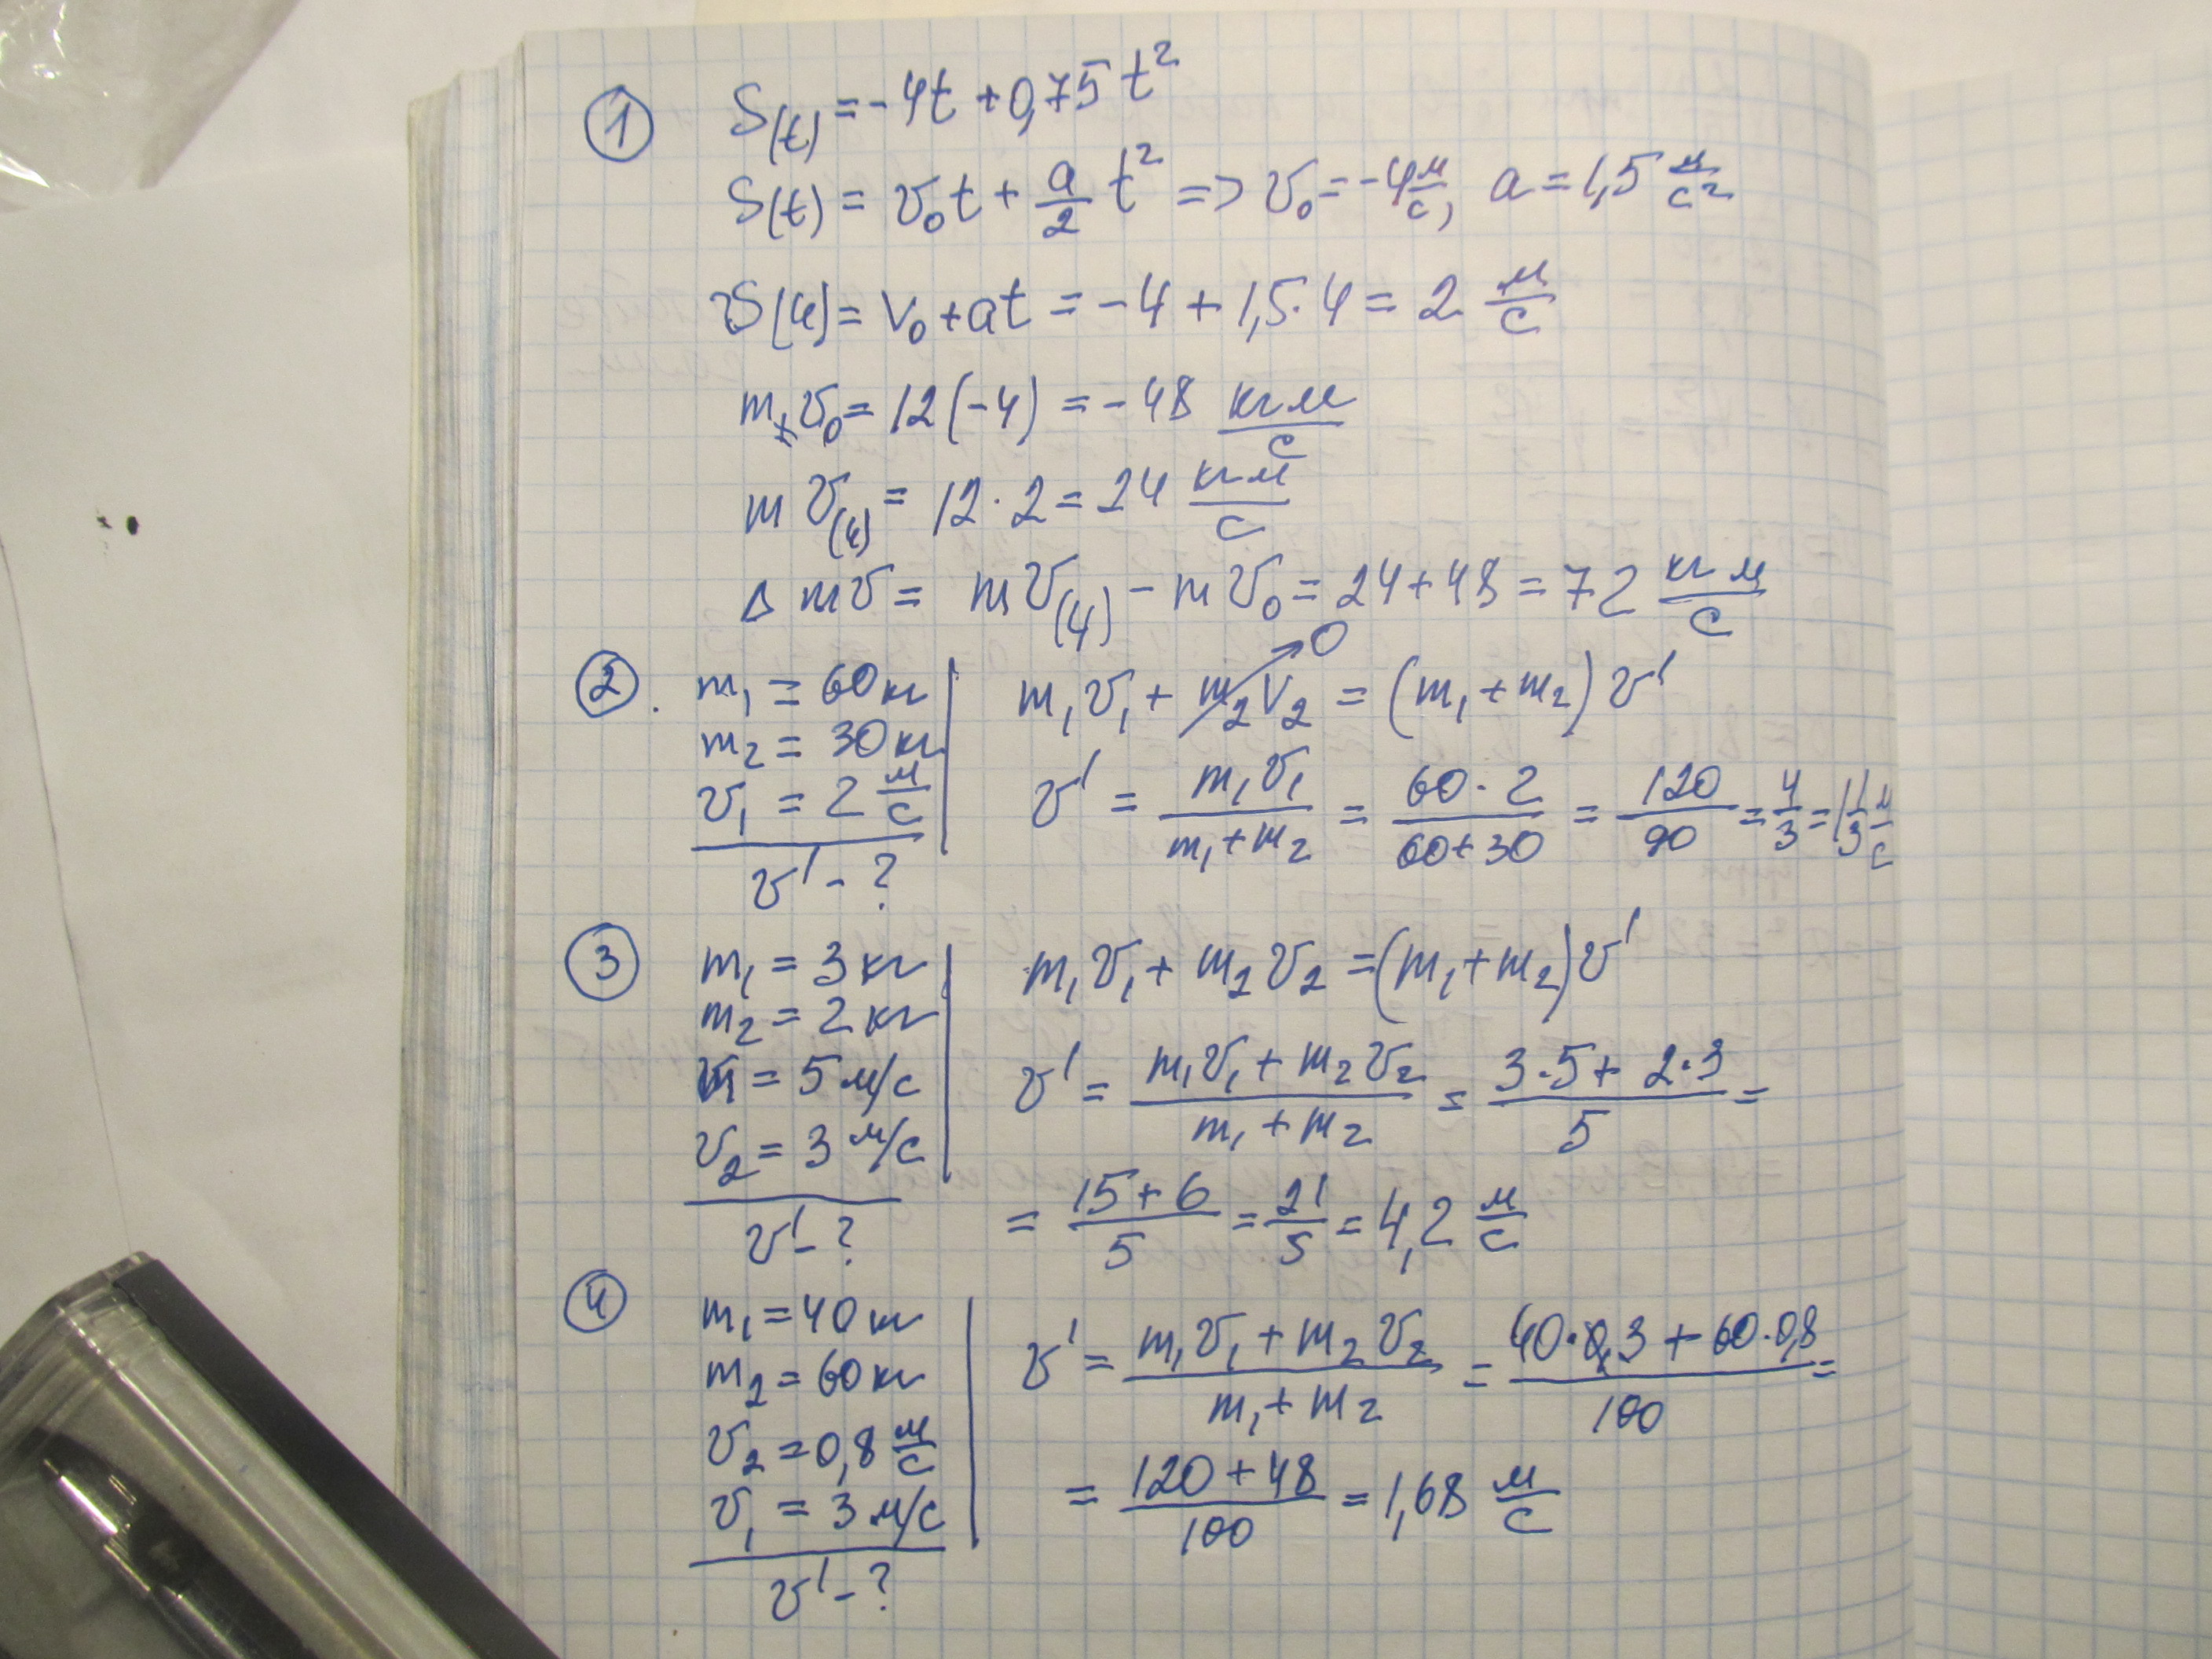 1
S(t) = -4t + 0,75 t²
S(t) = v₀t + a/2 t² => v₀ = -4 м/с, a = 1,5 м/с²
v(4) = v₀ + at = -4 + 1,5·4 = 2 м/с
m v₀ = 12(-4) = -48 кгм/с
m v(4) = 12·2 = 24 кгм/с
Δ mv = mv(4) - mv₀ = 24+48 = 72 кгм/с
2.
m₁ = 60кг
m₂ = 30кг
v₁ = 2 м/с
v' - ?
m₁v₁ + m₂v₂ → 0 = (m₁+m₂) v'
v' = m₁v₁/(m₁+m₂) = 60·2/(60+30) = 120/90 = 4/3 = 1 1/3 м/с
3
m₁ = 3кг
m₂ = 2кг
v₁ = 5 м/с
v₂ = 3 м/с
v' - ?
m₁v₁ + m₂v₂ = (m₁+m₂)v'
v' = (m₁v₁ + m₂v₂)/(m₁+m₂) = (3·5 + 2·3)/5 =
= (15+6)/5 = 21/5 = 4,2 м/с
4
m₁ = 40кг
m₂ = 60кг
v₂ = 0,8 м/с
v₁ = 3 м/с
v' - ?
v' = (m₁v₁ + m₂v₂)/(m₁+m₂) = (40·3 + 60·0,8)/100 =
= (120+48)/100 = 1,68 м/с